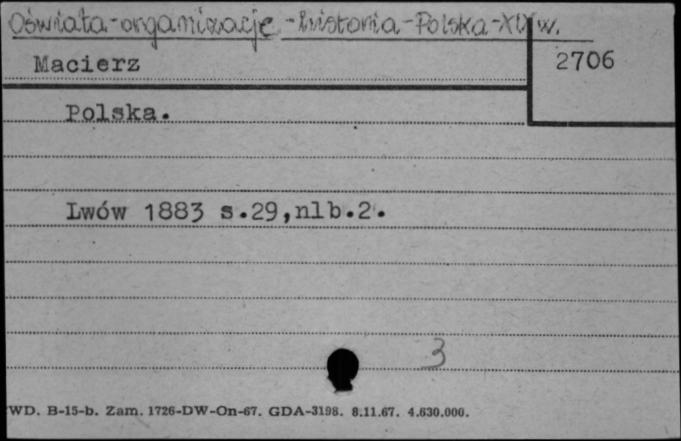 Oświata-organizacje-historia-Polska-XIX w.
Macierz
2706
Polska.
Lwów 1883 s.29,nlb.2.
3
WD. B-15-b. Zam. 1726-DW-On-67. GDA-3198. 8.11.67. 4.630.000.